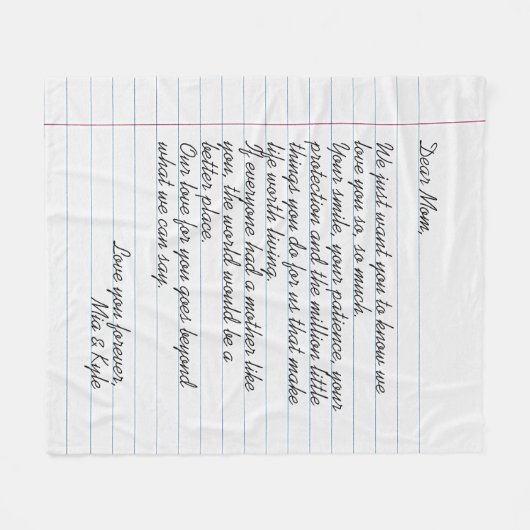 Dear Mom,
We just want you to know we
love you so, so much.
Your smile, your patience, your
protection and the million little
things you do for us that make
life worth living.
If everyone had a mother like
you, the world would be a
better place.
Our love for you goes beyond
what we can say.
Love you forever,
Mia & Kyle